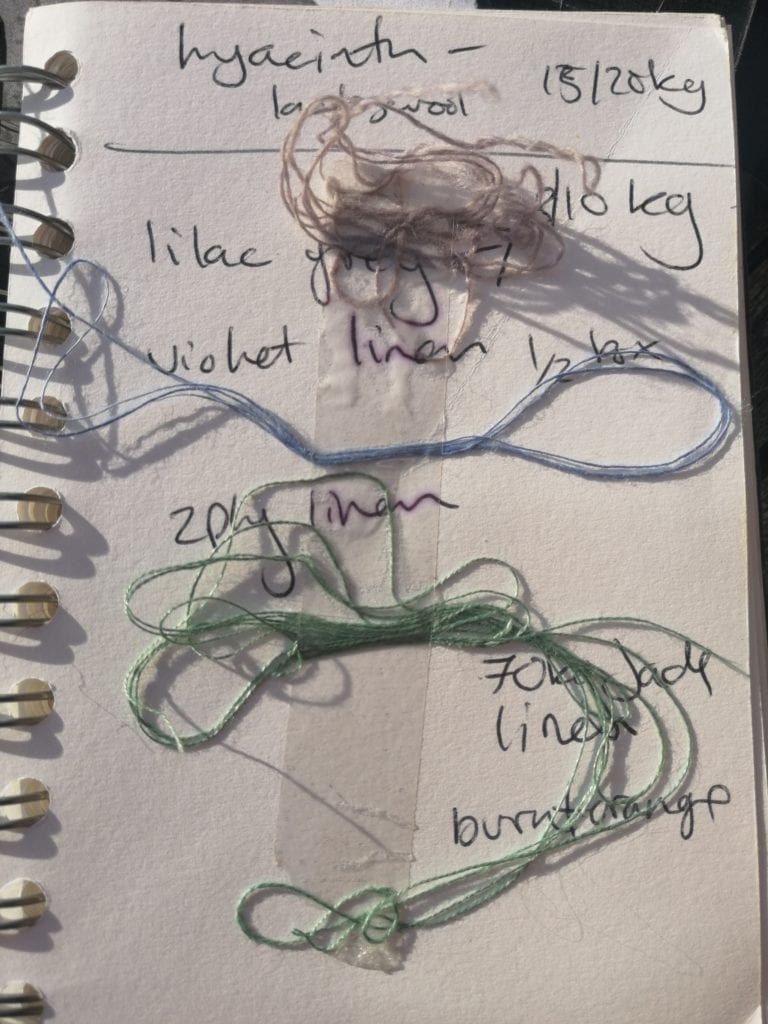 hyacinth -
lambswool 15/20kg
lilac grey - 10 kg
violet linen 1/2 box
2ply linen
70kg Jade
linen
burnt orange